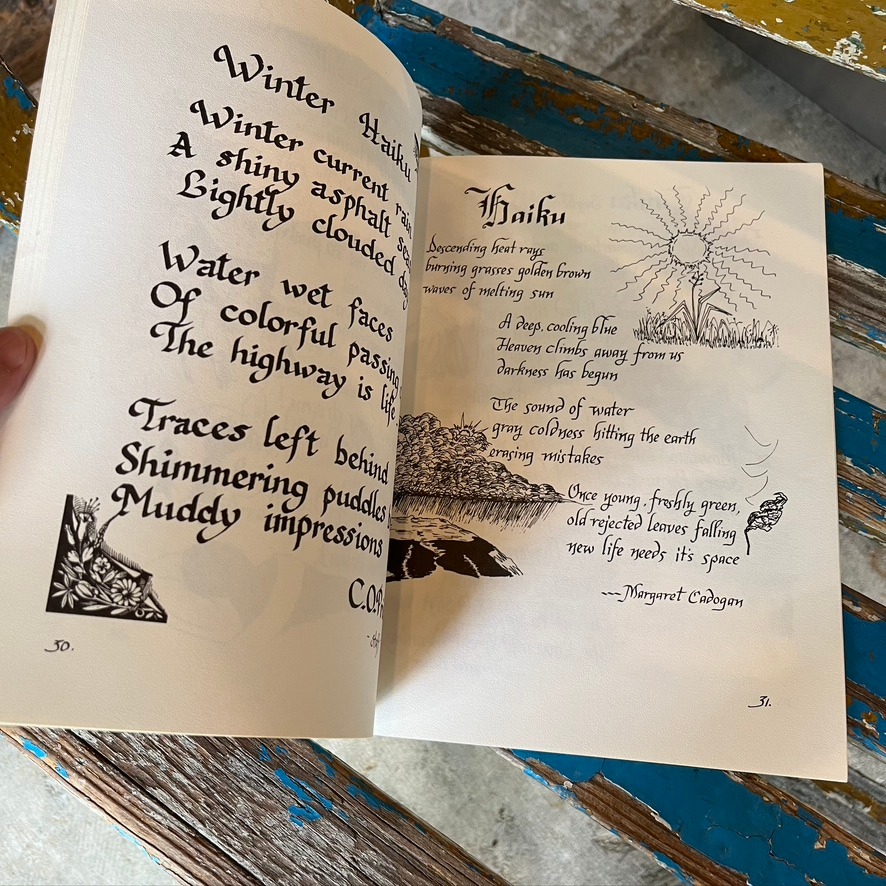 Winter Haiku
Winter current rain
A shiny asphalt
Lightly clouded
Water wet faces
Of colorful passing
The highway is life
Traces left behind
Shimmering puddles
Muddy impressions
30.
Haiku
Descending heat rays
burning grasses golden brown
waves of melting sun
A deep, cooling blue
Heaven climbs away from us
darkness has begun
The sound of water
gray coldness hitting the earth
erasing mistakes
Once young, freshly green,
old rejected leaves falling
new life needs it's space
---Margaret Cadogan
31.